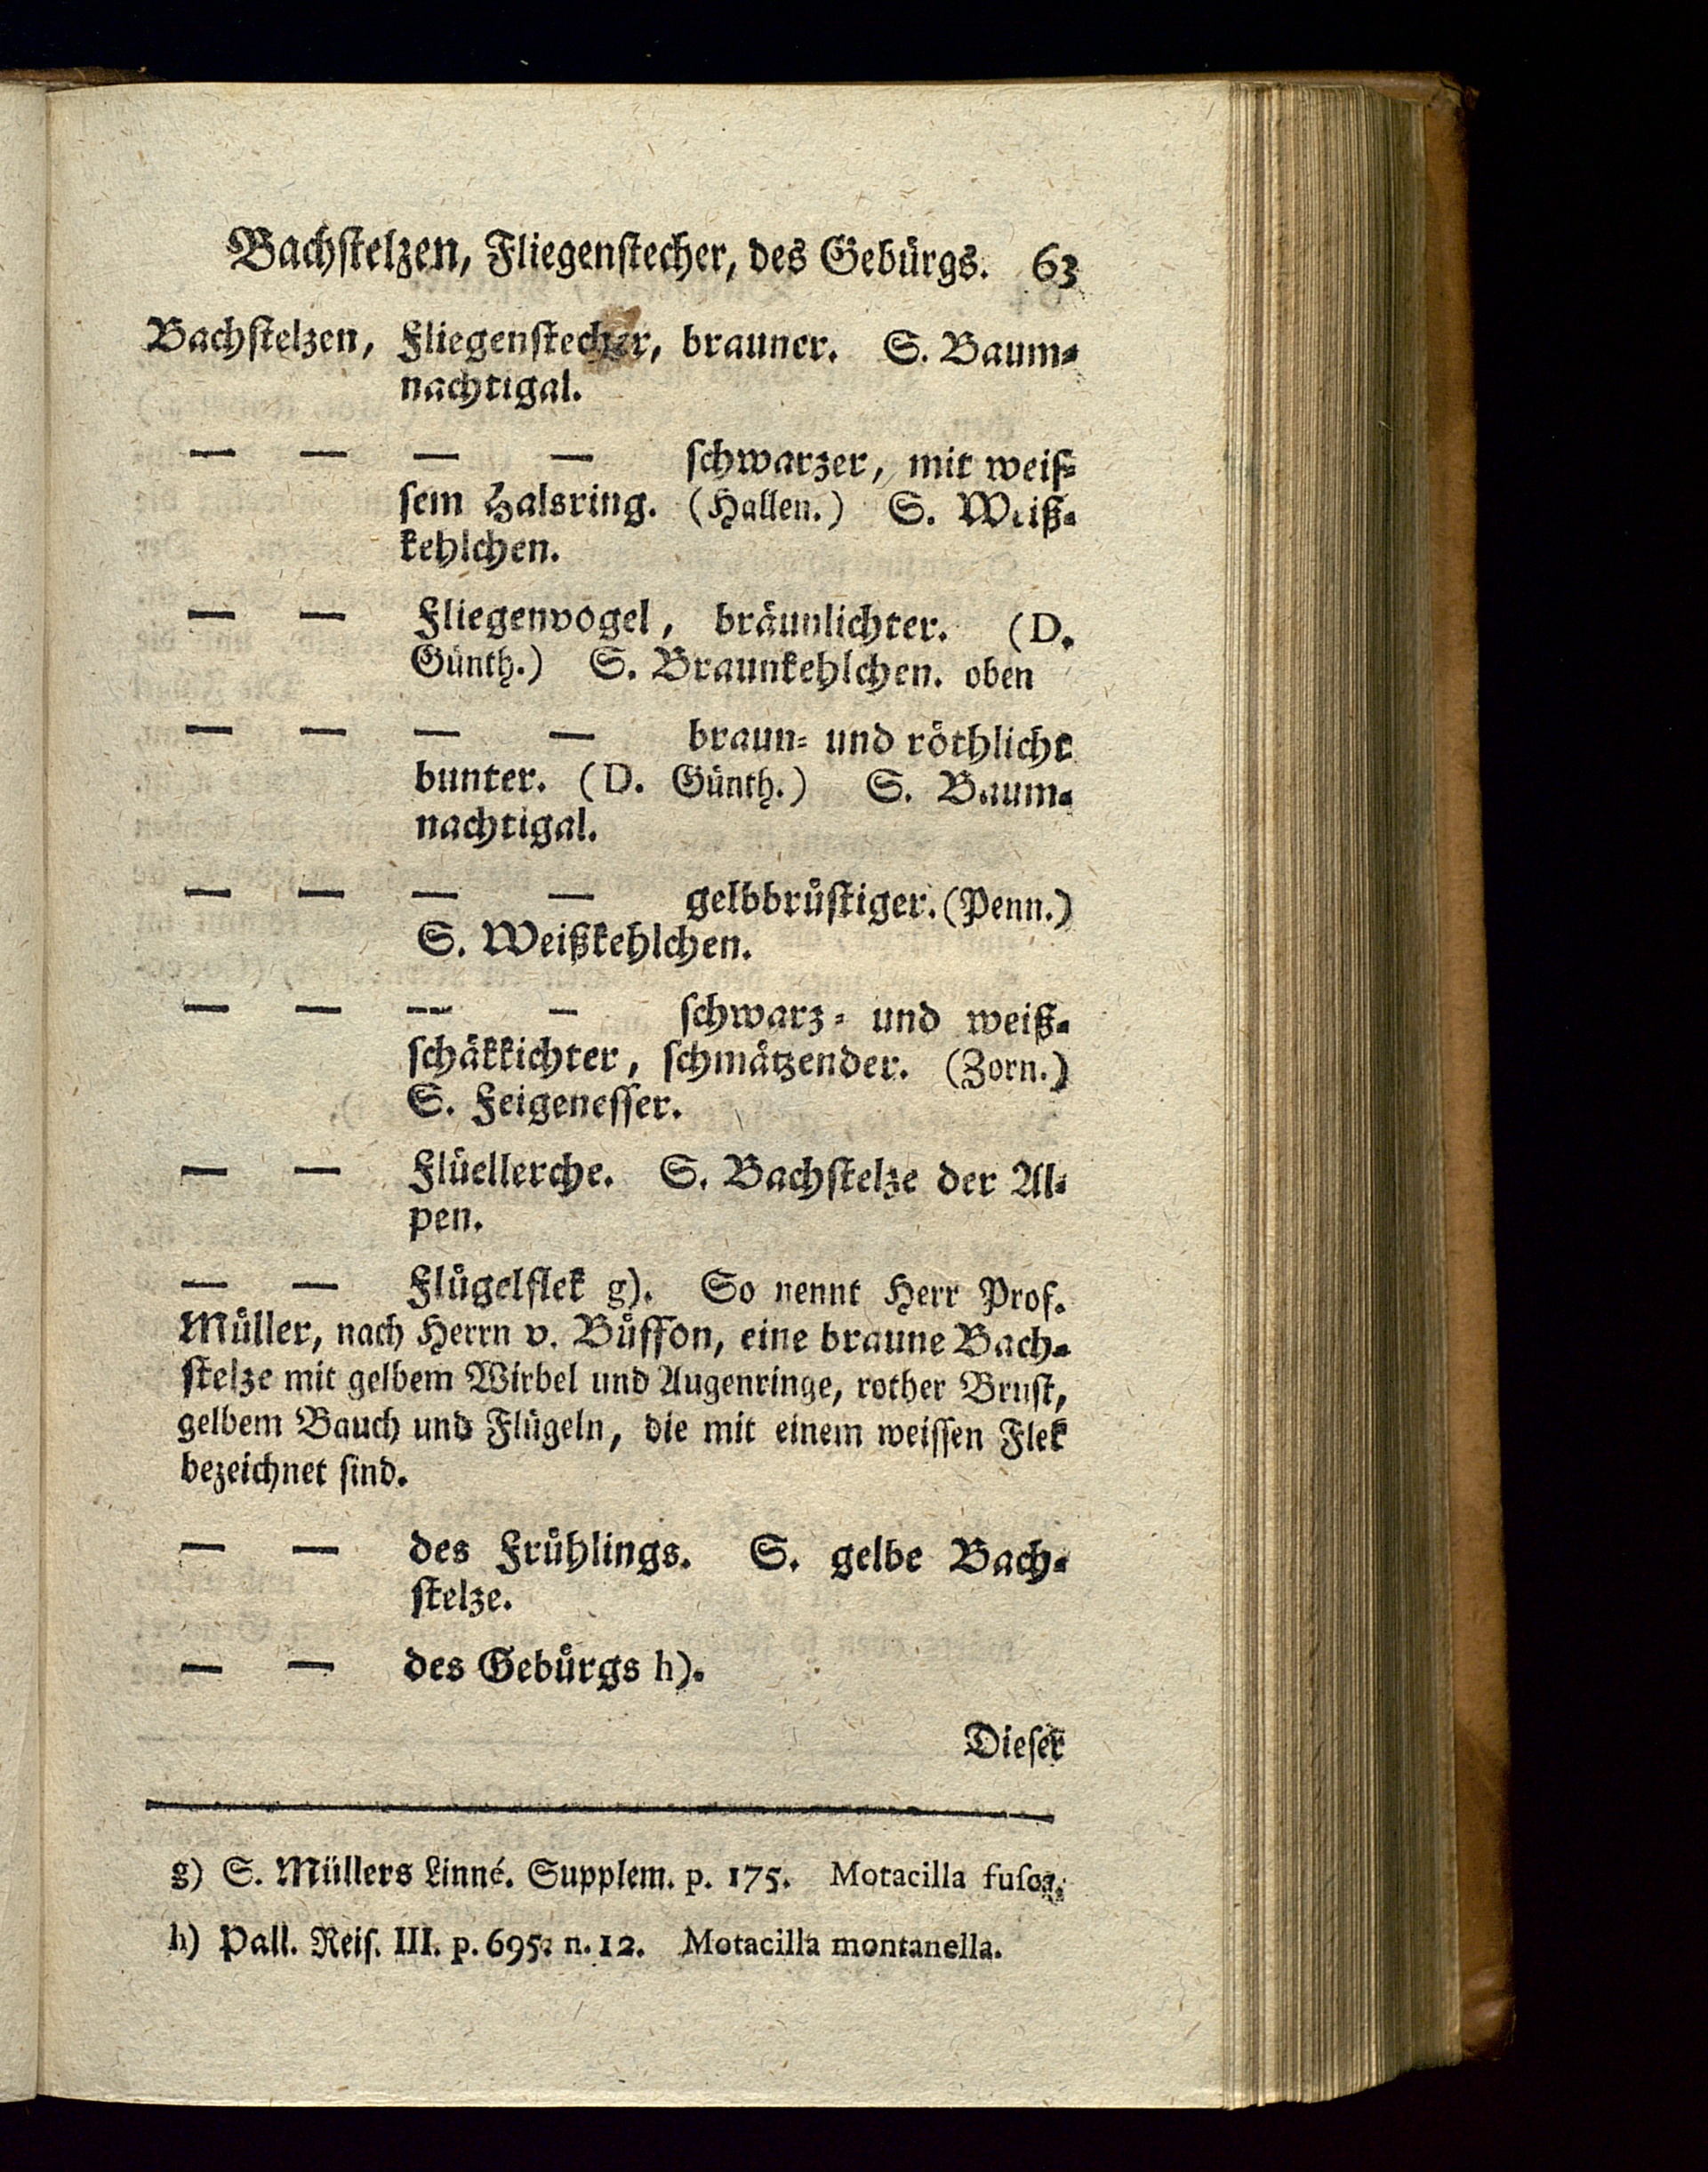 Bachſtelzen, Fliegenſtecher, des Gebürgs. 63
Bachſtelzen, Fliegenſtecher, brauner. S. Baum⸗
nachtigal.
— — — — ſchwarzer, mit weiſ⸗
ſem Halsring. (Hallen.) S. Weiß⸗
kehlchen.
— — Fliegenvogel, bräunlichter. (D.
Günth.) S. Braunkehlchen. oben
— — — — braun⸗ und röthlicht
bunter. (D. Günth.) S. Baum⸗
nachtigal.
— — — — gelbbrüſtiger. (Penn.)
S. Weißkehlchen.
— — — — ſchwarz⸗ und weiß⸗
ſchäkkichter, ſchmätzender. (Zorn.)
S. Feigeneſſer.
— — Flüellerche. S. Bachſtelze der Al⸗
pen.
— — Flügelflek g). So nennt Herr Prof.
Müller, nach Herrn v. Büffon, eine braune Bach⸗
ſtelze mit gelbem Wirbel und Augenringe, rother Bruſt,
gelbem Bauch und Flügeln, die mit einem weiſſen Flek
bezeichnet ſind.
— — des Frühlings. S. gelbe Bach⸗
ſtelze.
— — des Gebürgs h).
Dieſer
g) S. Müllers Linné. Supplem. p. 175. Motacilla fuſca.
h) Pall. Reiſ. III. p. 695. n. 12. Motacilla montanella.